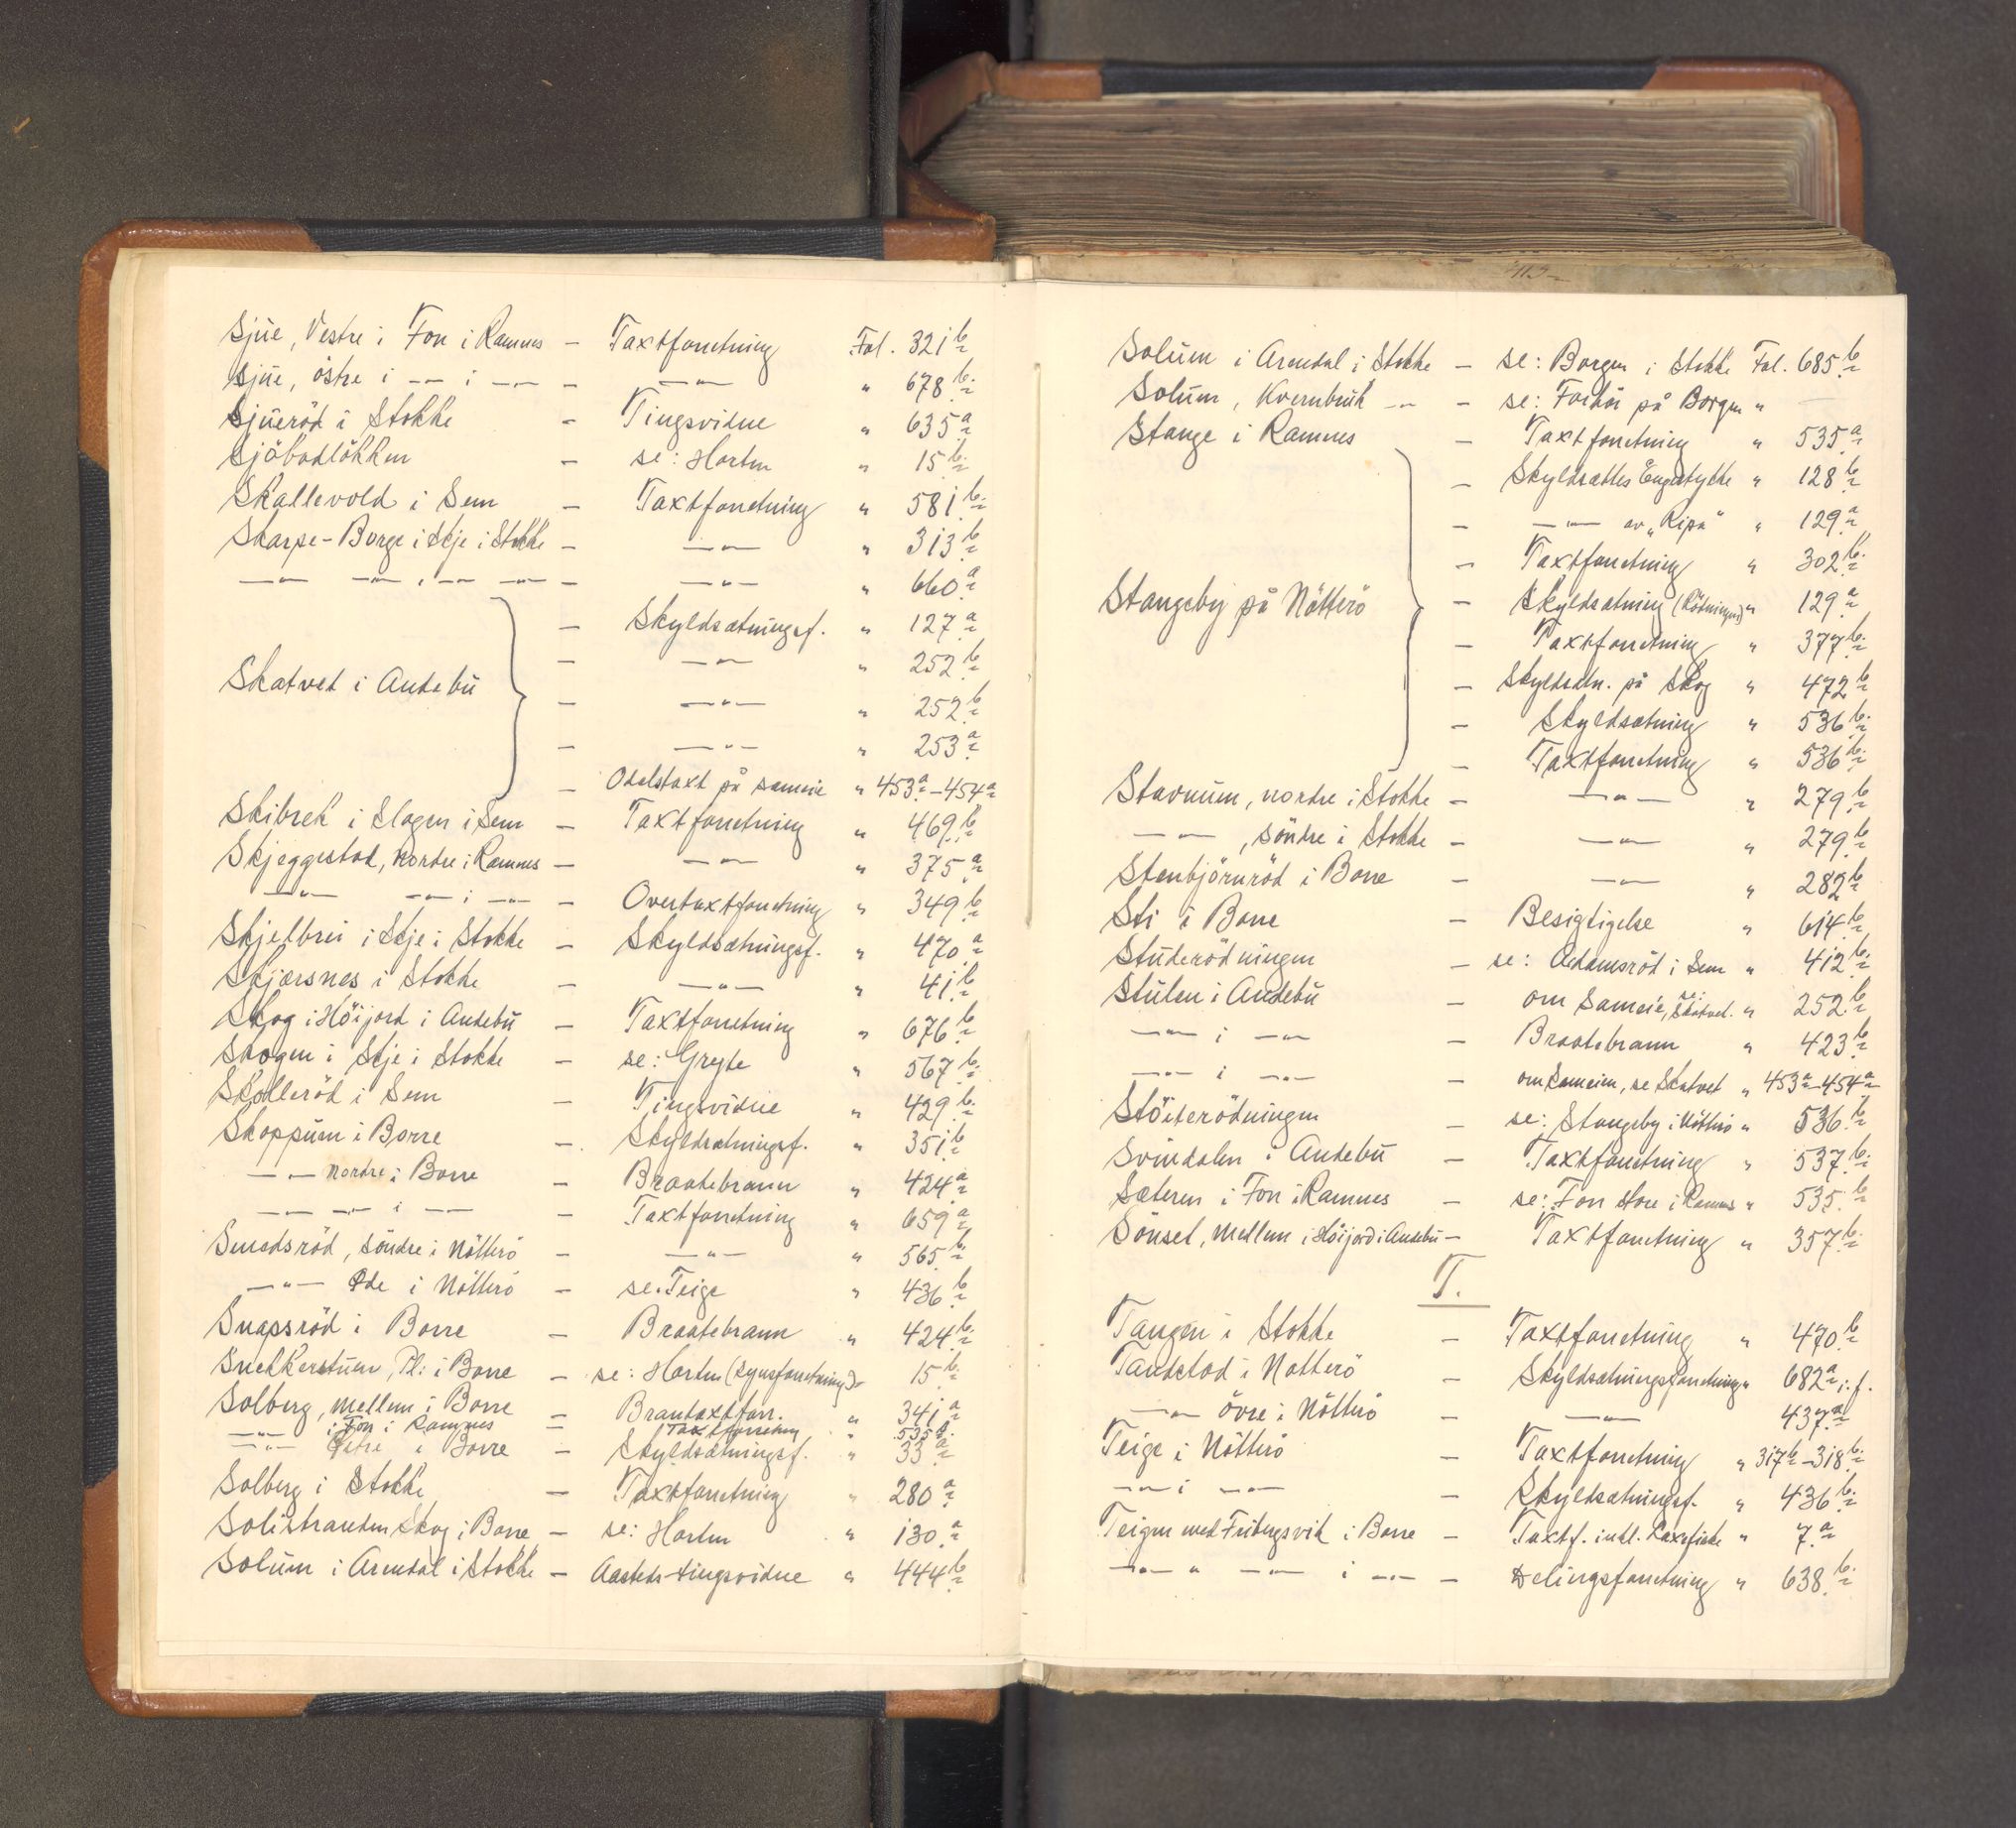 Sjue, Vestre i Fon i Ramnes – Taxtforretning Fol. 321 b
Sjue, östre i –"– i –"– – –"– " 678 b
Sjueröd i Stokke – Tingsvidne " 635 a
Sjöbodlökken – se: Horten " 15 b
Skallevold i Sem – Taxtforretning " 581 b
Skarpe-Borge i Skje i Stokke – –"– " 313 b
–"– –"– i –"– –"– – –"– " 660 a
– Skyldsætningsf. " 127 a
– –"– " 252 b
Skatvet i Andebu – –"– " 252 b
– –"– " 253 a
– Odelstaxt på sameie " 453 a – 454 a
Skibrek i Slagen i Sem – Taxtforretning " 469 b
Skjeggestad, nordre i Ramnes – –"– " 375 a
–"– –"– i –"– – Overtaxtforretning " 349 b
Skjelbrei i Skje i Stokke – Skyldsætningsf. " 470 a
Skjærsnes i Stokke – –"– " 41 b
Skog i Höijord i Andebu – Taxtforretning " 676 b
Skogen i Skje i Stokke – se: Gryte " 567 b
Skolleröd i Sem – Tingsvidne " 429 b
Skoppum i Borre – Skyldsætningsf. " 351 b
–"– nordre i Borre – Braatebrann " 424 a
–"– –"– i –"– – Taxtforretning " 659 a
Smedsröd, söndre i Nötterö – –"– " 565 b
–"– Øde i Nötterö – se: Teige " 436 b
Snapsröd i Borre – Braatebrann " 424 b
Snekkerstuen, Pl: i Borre – se: Horten (Synsforretning) " 15 b
Solberg, mellem i Borre – Brantaxtforr. " 341 a
–"– i Fon i Ramnes – Taxtforretning " 535 b
–"– i Borre – Skyldsætningsf. " 33 a
Solberg i Stokke – Taxtforretning " 280 a
Solistranden Skog i Borre – se: Horten " 130 a
Solum i Arendal i Stokke – Aasteds-tingsvidne " 444 b
Solum i Arendal i Stokke – se: Borgen i Stokke Fol. 685 b
Solum, Kvernbruk –"– – se: Forhör på Borgen " –
Stange i Ramnes – Taxtforretning " 535 a
– Skyldsættes Engstykke " 128 b
– –"– av "Ripa" " 129 a
– Taxtforretning " 302 b
Stangeby på Nötterö – Skyldsætning (Rödningen) " 129 a
– Taxtforretning " 377 b
– Skyldsætn. på Skog " 472 b
– Skyldsætning " 536 b
– Taxtforretning " 536 b
Stavnum, nordre i Stokke – –"– " 279 b
–"–, söndre i Stokke – –"– " 279 b
Stenbjörnröd i Borre – –"– " 282 b
Sti i Borre – Besigtigelse " 614 b
Studerödningen – se: Adamsröd i Sem " 412 b
Stulen i Andebu – om Sameie, se: Skatvet. " 252 b
–"– i –"– – Braatebrann " 423 b
–"– i –"– – om Sameien, se Skatvet " 453 a – 454 a
Stöiterödningen – se: Stangeby i Nötterö " 536 b
Svindalen i Andebu – Taxtforretning " 537 b
Sæteren i Fon i Ramnes – se: Fon store i Ramnes " 535 b
Sönset, mellem i Höijord i Andebu – Taxtforretning " 357 b
T.
Tangen i Stokke – Taxtforretning " 470 b
Tandstad i Nötterö – Skyldsætningsforretning " 682 a i. f.
–"– övre i Nötterö – –"– 437 a
Teige i Nötterö – Taxtforretning " 317 b – 318 b
–"– i –"– – Skyldsætningsf. " 436 b
Teigen med Fribergsvik i Borre – Taxtf. inkl. Laxefiske " 7 a
–"– " –"– i –"– – Delingsforretning " 638 b